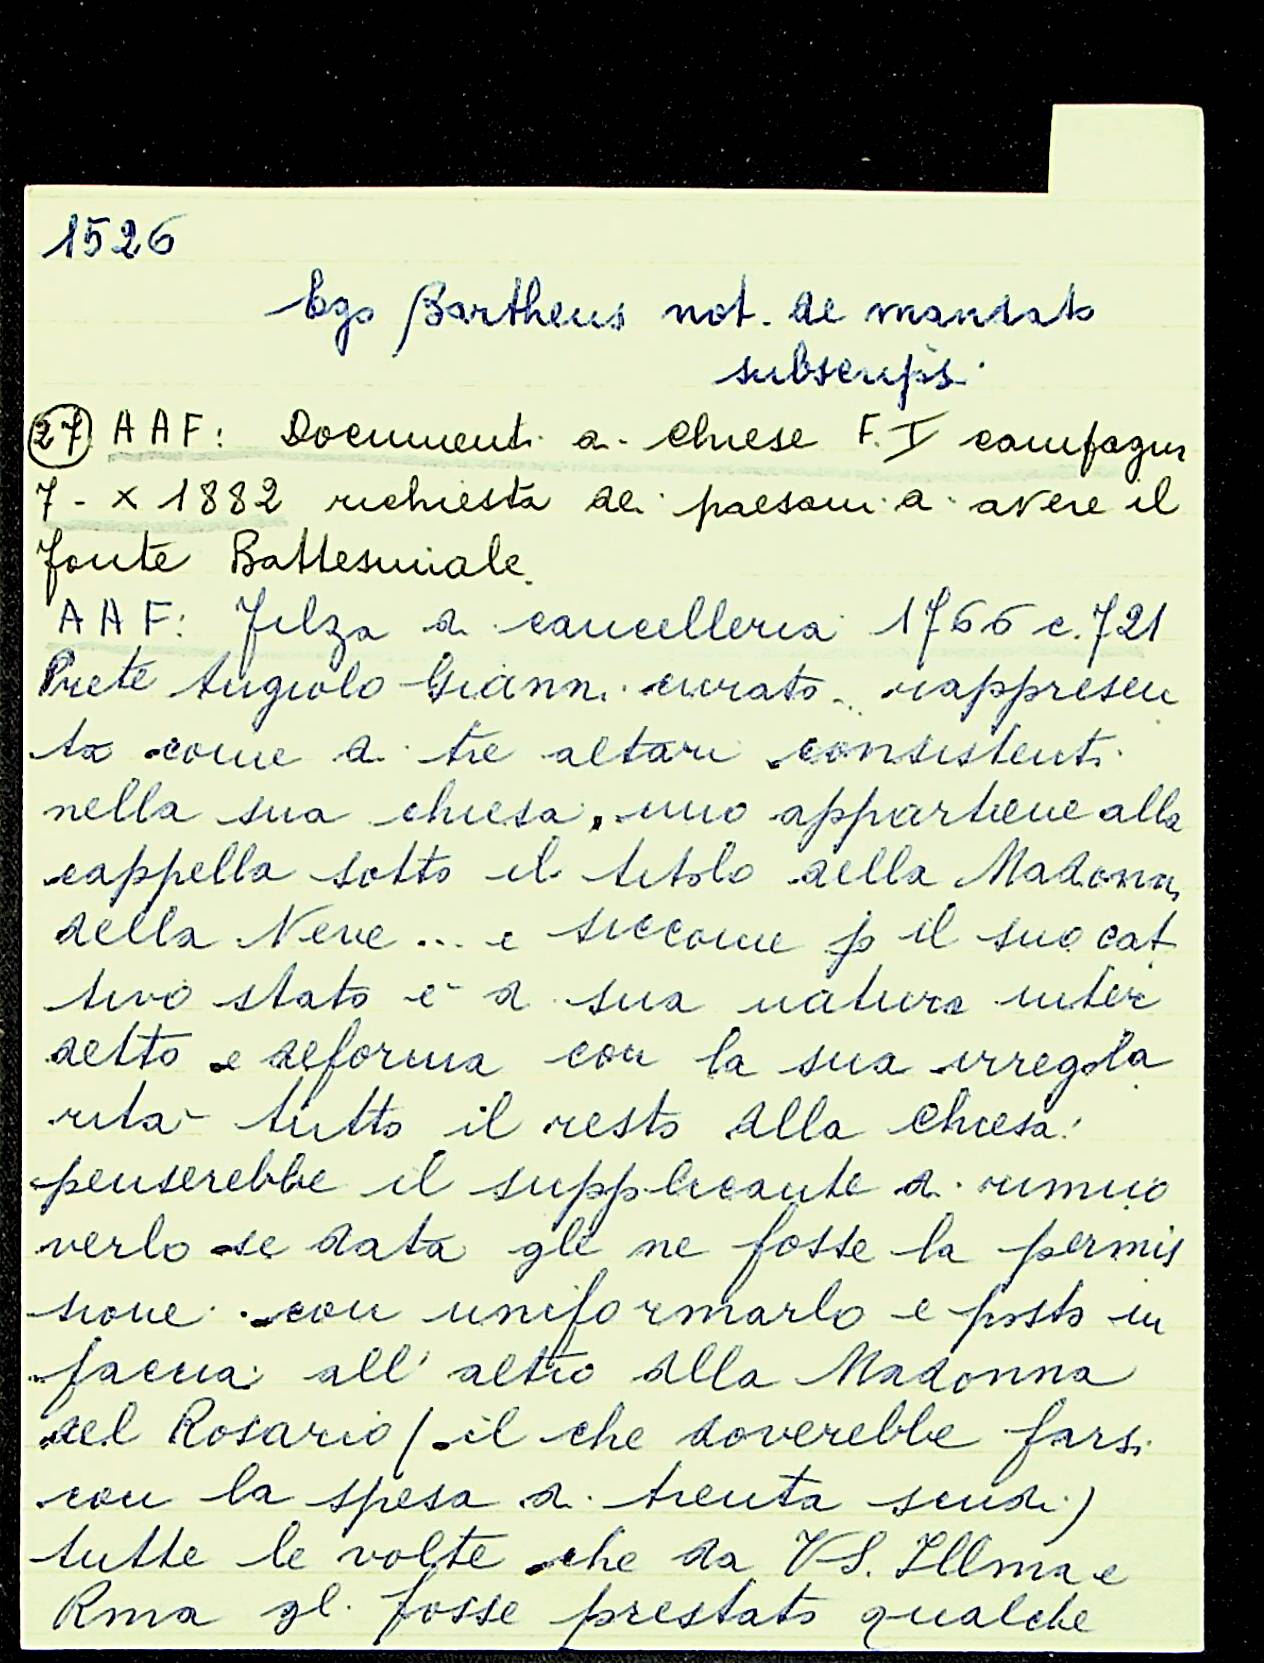 1526
Ego Bartheus not. de mandato
subscripsi.
27 AAF: Documenti di chiese F. I campagn
7-X 1882 richiesta dei paesani di avere il
fonte Battesimale.
AAF: Filza di cancelleria 1766 c. 721
Prete Angiolo Gianni curato.. rappresen
ta come di tre altari consistenti
nella sua chiesa, uno appartiene alla
cappella sotto il titolo della Madonna
della Neve ... e siccome p il suo cat
tivo stato è di sua natura inter
detto e deforma con la sua irregola
rità tutto il resto della chiesa:
penserebbe il supplicante di rimuo
verlo se data gli ne fosse la permis
sione. con uniformarlo e posto in
faccia all' altro della Madonna
del Rosario (il che doverebbe farsi
con la spesa di trenta scudi)
tutte le volte che da VS. Illma e
Rma gli fosse prestato qualche